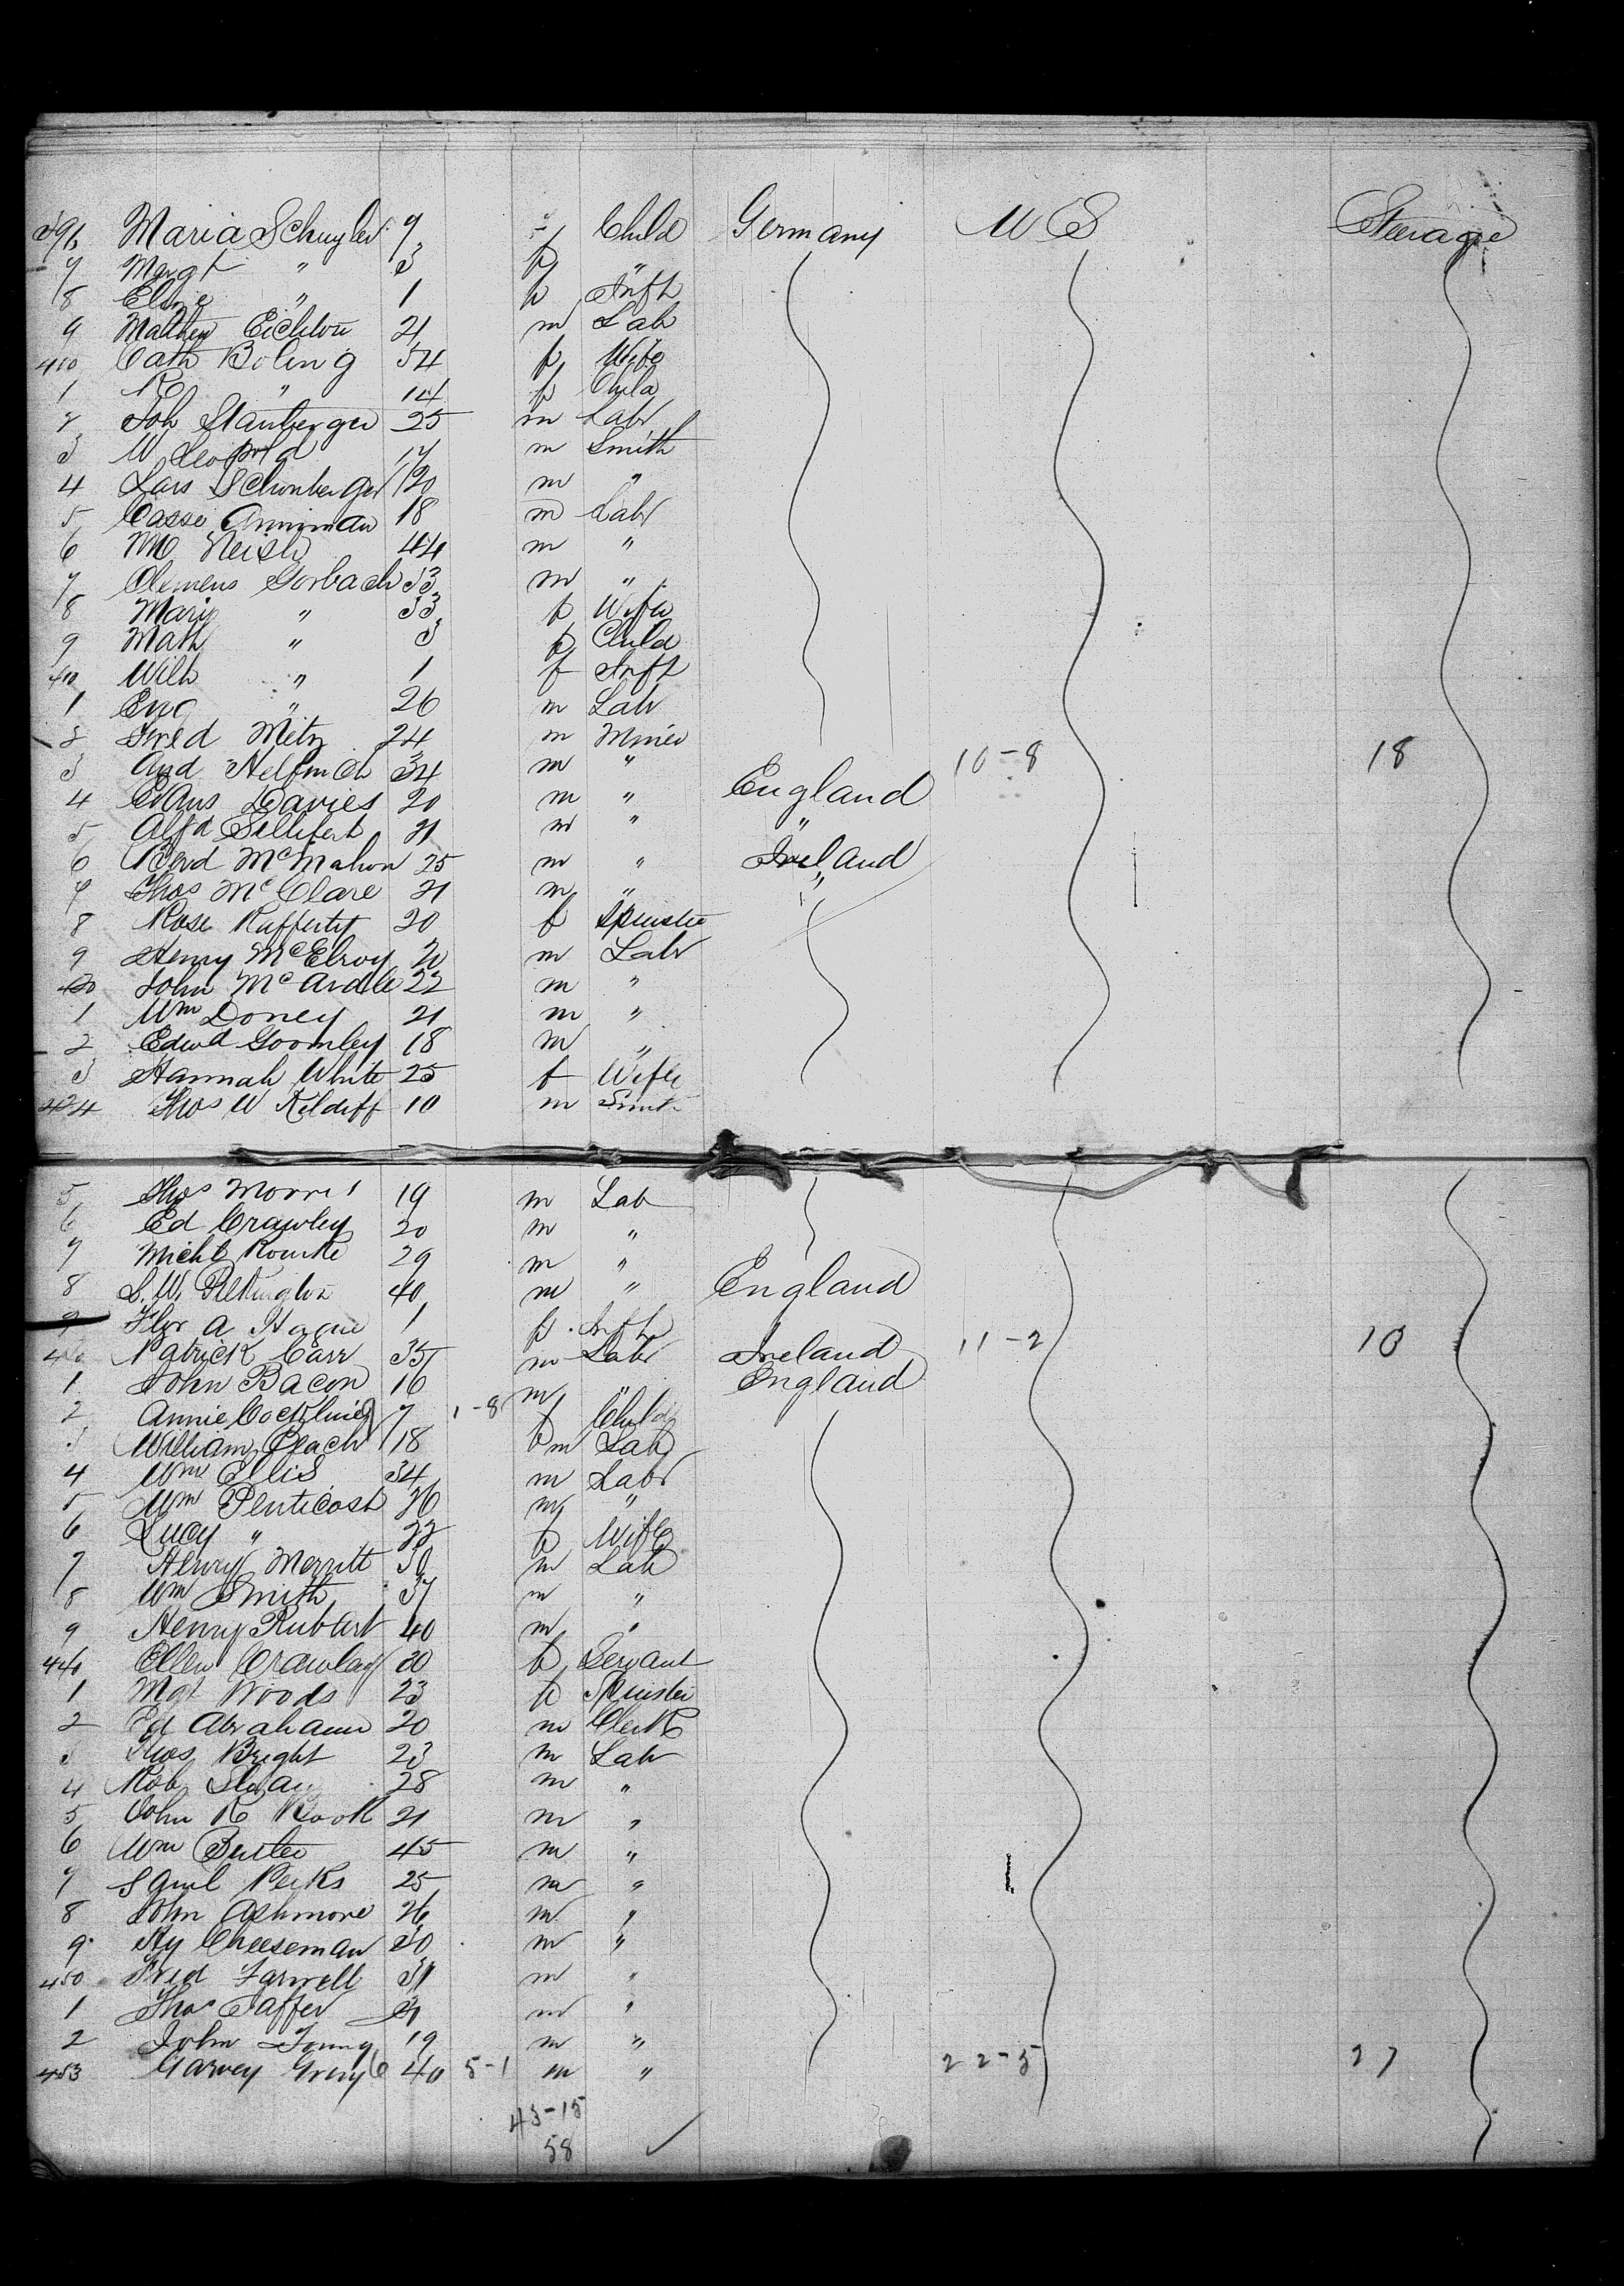 396 Maria Schuyler 9 f Child Germany U S Steerage
7 Margt " 3 f "
8 Elsie " 1 f Inft
9 Mathew 21 m Lab
400 Cath Boling 34 f Wife
1 " 14 f Child
2 Joh Stanberger 25 m Labr
3 W Leopold 17 m Smith
4 Lars Schonberger 20 m "
5 Casse Anniman 18 m Labr
6 44 m "
7 Clemens Gorbach 33 m "
8 Marie " 33 f Wife
9 Math " 3 f Child
410 Wilh " 1 f Inft
1 " 26 m Lab
2 Fred Metz 24 m Miner
3 And 34 m " 10-8 18
4 Evans Davies 20 m " England
5 Alfd 21 m " "
6 Berd McMahon 25 m " Ireland
7 Thos McClare 21 m " "
8 Rose Rafferty 20 f Spinster
9 Henry McElroy 20 m Labr
420 John McArdle 22 m "
1 Wm Doney 21 m "
2 Edwd Goomley 18 m "
3 Hannah White 25 f Wife
424 Thos W Kildiff 10 m Smith
5 Thos Morris 19 m Lab
6 Ed Crawley 20 m "
7 Michl Rourke 29 m "
8 S. W. Pilkington 40 m " England
9 Flor A Hague 1 f Inft
430 Patrick Carr 35 m Labr Ireland 11-2 13
1 John Bacon 16 m " England
2 Annie 7 1-8 f Child
3 William Peach 18 m Lab
4 Wm Ellis 34 m Labr
5 Wm Penticost 26 m "
6 Lucy " 22 f Wife
7 Henry Merritt 30 m Lab
8 Wm Smith 37 m "
9 Henry 40 m "
440 Ellen Crawley 20 f Servant
1 Mgt Woods 23 f Spinster
2 Ed Abraham 20 m Clerk
3 Thos Bright 23 m Lab
4 Rob Sloan 28 m "
5 John R Rook 21 m "
6 Wm 45 m "
7 Saml Perks 25 m "
8 John Ashmore 26 m "
9 Hy Cheeseman 30 m "
450 Fred Farwell 31 m "
1 Thos Taffer 21 m "
2 John Young 19 m "
453 Garvey 40 5-1 m " 22-5 27
43-15
58